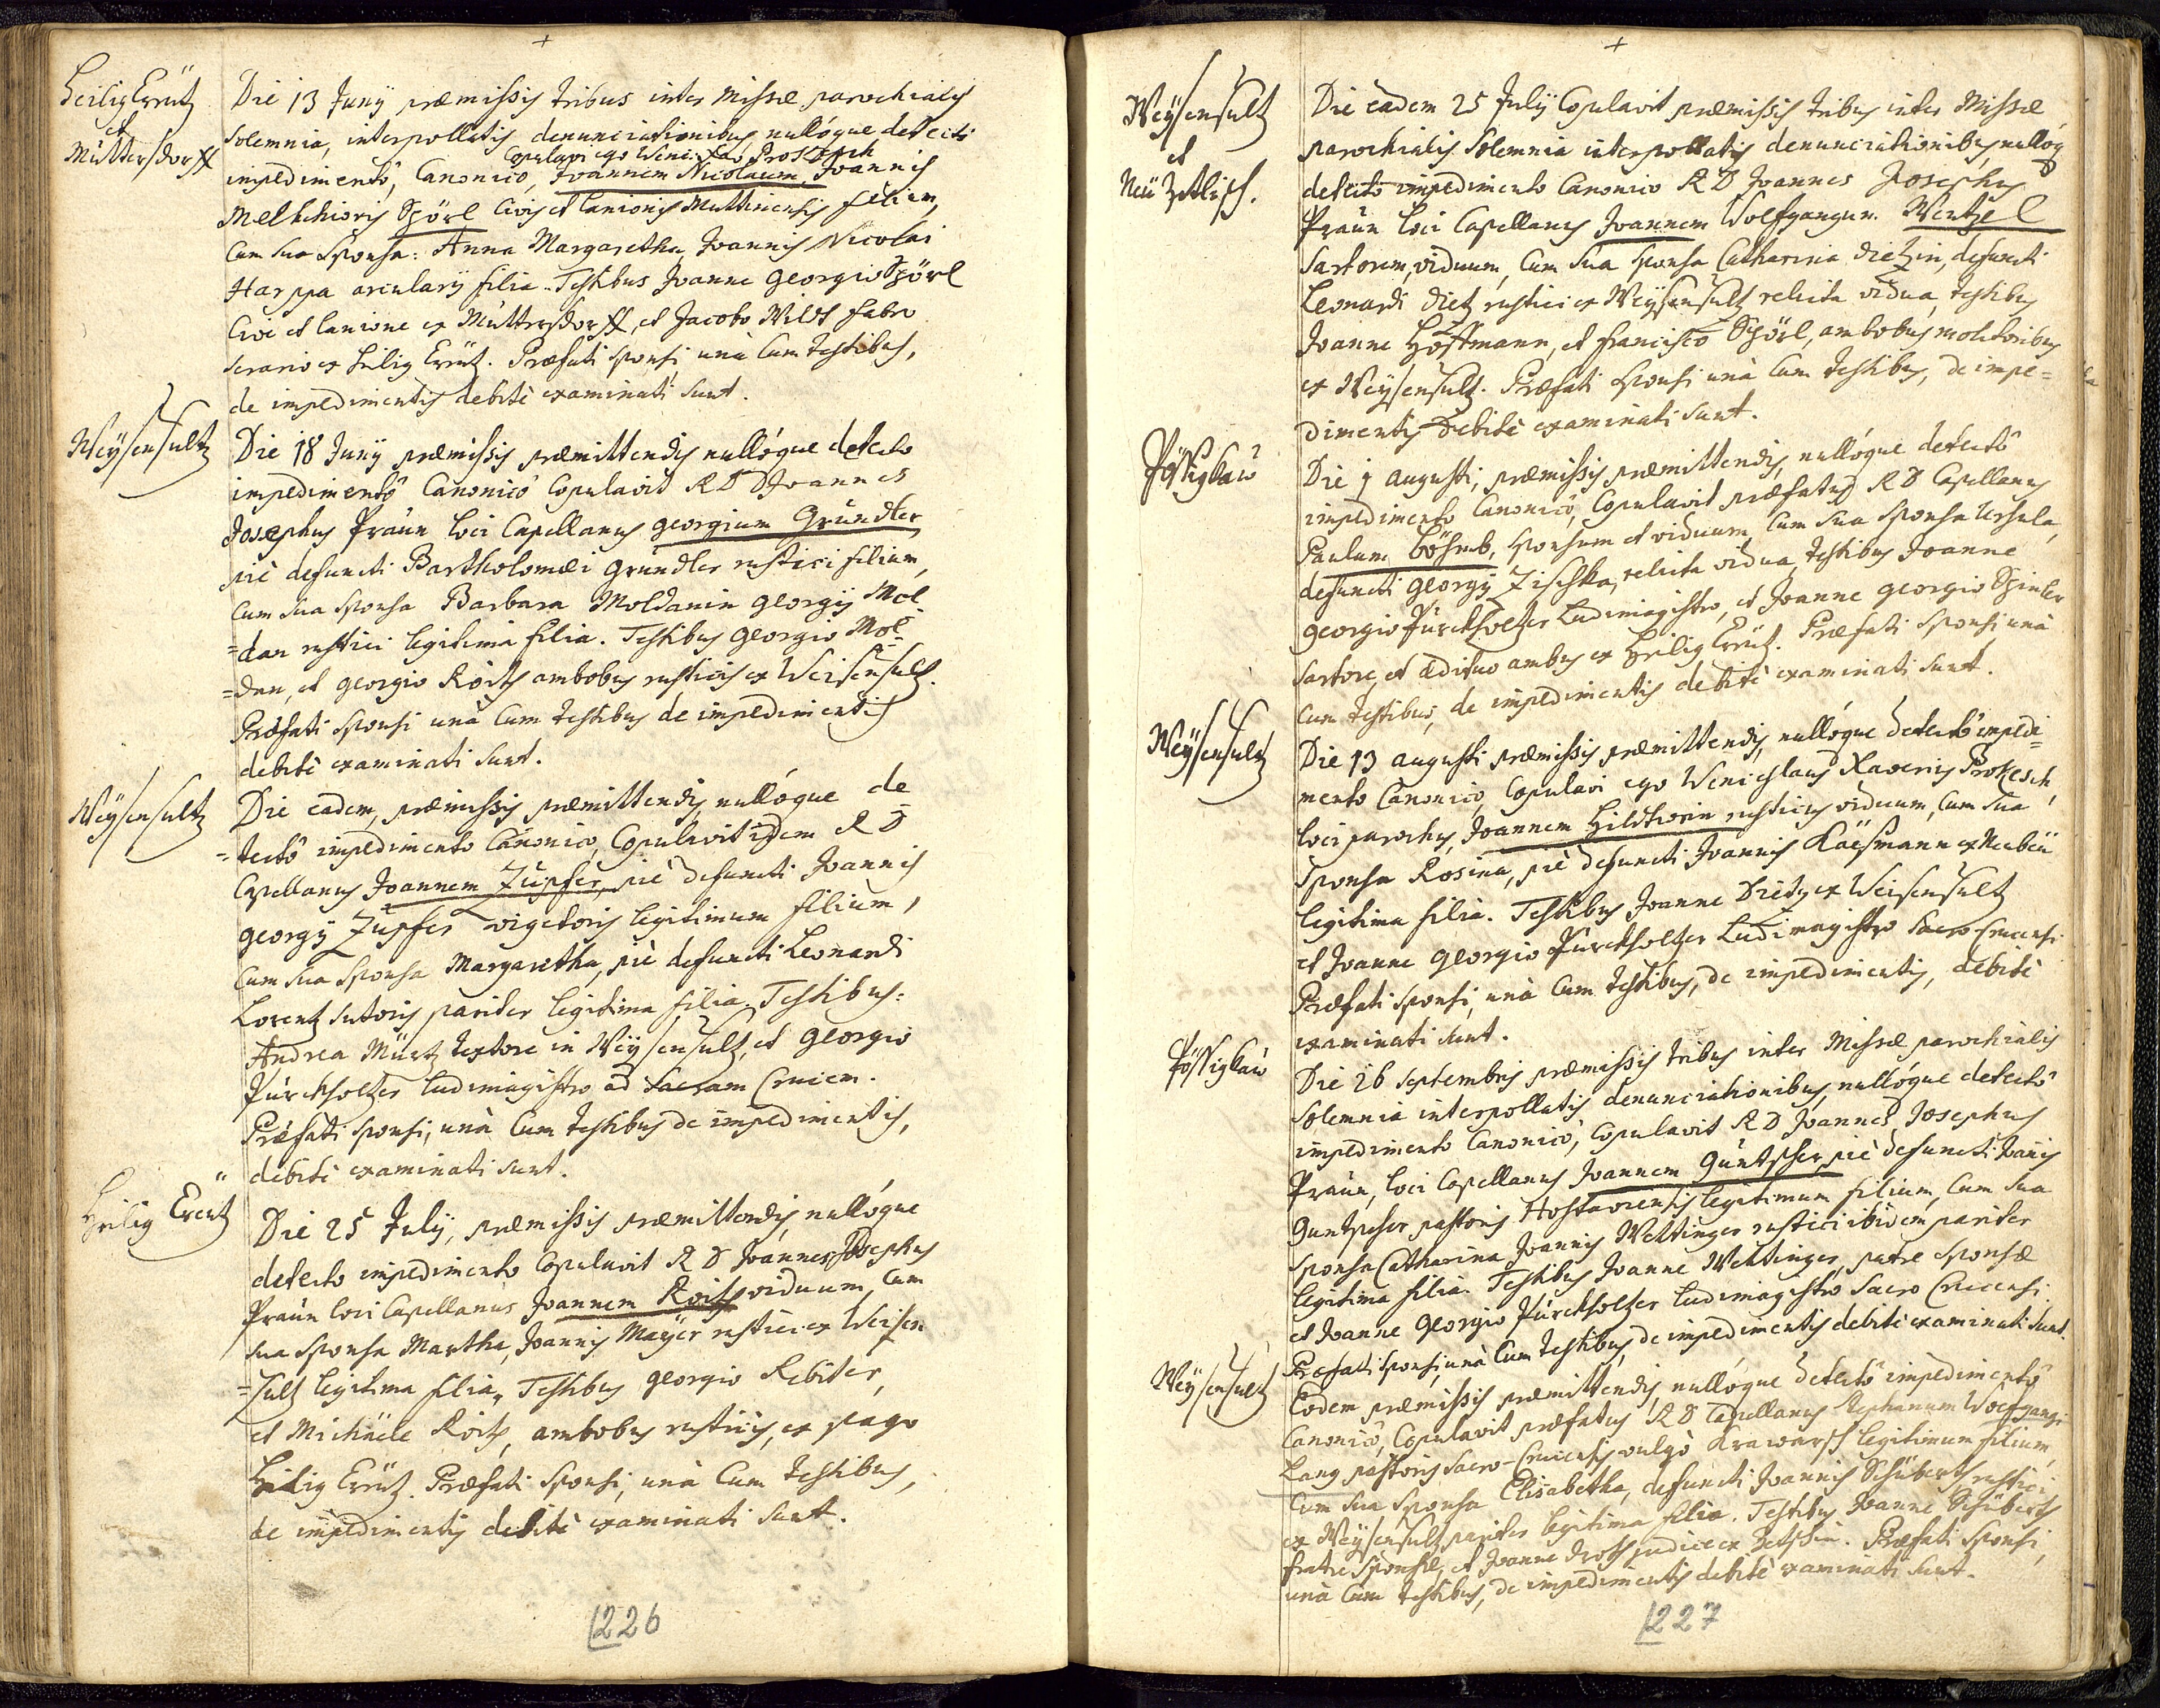 +
Heilig Creütz
et
Muttersdorff
Die 13 Junÿ præmissis tribus inter Missæ parochialis
solemnia, interpollatis denunciationibus nullóque detecto
copulavi ego Wenceslaus Prokosch
impedimentô, Canonicô, Joannem Nicolaum, Joannis
Melkhioris Spörl civis et lanionis Muttinensis filium,
cum sua sponsa: Anna Margaretha, Joannis Nicolai
Harppa arcularÿ filia. Testibus Joanne Georgio Spörl
cive et lanione ex Muttersdorff, et Jacobo Wildt fabro
serario ex Heilig Creütz. Præfati sponsi unà cum testibus,
de impedimentis debitè examinati sunt.
Weÿsensultz
Die 18 Junÿ præmissis præmittendis nullóque detecto
impedimentô Canonicô copulavit R D Joannes
Josephus Praun loci Capellanus Georgium Gründler
piè defuncti Bartholomæi Gründler rustici filium,
cum sua sponsa Barbara Moldanin Georgÿ Mol-
=dan rustici legitima filia. Testibus Georgio Mol-
=dan, et Georgio Roith ambobus rusticis ex Weisensultz.
Præfati sponsi unà cum testibus de impedimentis
debitè examinati sunt.
Weÿsensultz
Die eadem, præmissis præmittendis, nullóque de
=tectô impedimento Canonico, copulavit idem R D
Capellanus Joannem Züpfer, piè defuncti Joannis
Georgÿ Züpfer vigetoris legitimum filium,
cum sua sponsa Margaretha, piè defuncti Leonardi
Lorentz sutoris pariter legitima filia. Testibus:
Andrea Mürtz textore in Weÿsensultz, et Georgio
Pürckholtzer ludimagistro ad Sacram Crucem.
Præfati sponsi, unà cum testibus de impedimentis,
debitè examinati sunt.
Heilig Creütz
Die 25 Julÿ, præmissis præmittendis, nullóque
detecto impedimento copulavit R D Joannes Josephus
Praun loci Capellanus Joannem Roith viduum, cum
sua sponsa Martha, Joannis Maÿer rustici ex Weisen
=sultz legitima filia, Testibus Georgio Rebiter,
et Michaele Roith, ambobus rusticis, ex pago
Heilig Creütz. Præfati sponsi, unà cum testibus,
de impedimentis debitè examinati sunt.
226
+
Weÿsensultz
et
Neü Zetlisch.
Die eadem 25 Julÿ copulavit præmissis tribus inter Missæ
parochialis solemnia interpollatis denunciationibus, nullóq
detecto impedimento Canonico R D Joannes Josephus
Praun loci Capellanus Joannem Wolfgangum Wentzel
sartorem, viduum, cum sua sponsa Catharina Dietzin, defuncti
Leonardi Dietz rustici ex Weÿsensultz relicta vidua, testibus
Joanne Hoffmann, et Francisco Spörl, ambobus molitoribus
ex Weÿsensultz. Præfati sponsi unà cum testibus, de impe=
dimentis debitè examinati sunt.
Pössigkau
Die 9 Augusti, præmissis præmittendis, nullóque detectô
impedimento Canonicô, copulavit præfatus R D Capellanus
Paulum Böhmb, sponsum et viduum, cum sua sponsa Ursula,
defuncti Georgÿ Zischka, relicta vidua, testibus Joanne
Georgio Pürckholtzer Ludimagistro, et Joanne Georgio Spinler
sartore, et ædituo ambus ex Heilig Creütz. Præfati sponsi unà
cum testibus, de impedimentis debitè examinati sunt.
Weÿsensultz
Die 13 Augusti præmissis præmittendis, nullóque detectô impedi=
mento Canonicô, copulavi ego Wenceslaus Xaverius Prokesch,
loci parochus, Joannem Hildtwein rusticus viduum, cum sua
sponsa Rosina, piè defuncti Joannis Käesmann ex Neubäu
legitima filia. Testibus Joanne Dietz ex Weisensultz
et Joanne Georgio Pürckholtzer Ludimagistro Sacro Crucensi
Præfati sponsi, unà cum testibus, de impedimentis, debitè
examinati sunt.
Pössigkau
Die 26 Septembris præmissis tribus inter Missæ parochialis
solemnia interpollatis denunciationibus, nullóque detectô
impedimento Canonicô, copulavit R D Joannes Josephus
Praun, loci Capellanus Joannem Güntzsher, piè defuncti Joanis
Guntzsher pastoris Hostaviensis legitimum filium, cum sua
sponsa Catharina Joannis Weltinger rustici ibidem pariter
legitima filia. Testibus Joanne Weltinger, patre sponsæ
et Joanne Georgio Pürckholtzer ludimagistro Sacro Crucensi.
Præfati sponsi, unà cum testibus, de impedimentis debitè examinati sunt.
Weÿsensultz
Eodem præmissis præmittendis, nullóque detectô impedimentô
Canonicô, copulavit præfatus R D Capellanus Stephanum Wolfgangi
Lang pastoris Sacro-Crucensis vulgò Krawarsh legitimum filium,
cum sua sponsa Elisabetha, defuncti Joannis Schüberth rustici
ex Weÿsensultz pariter legitima filia. Testibus Joanne Schüberth
fratre sponsæ, et Joanne Droth judice ex Zetschin. Præfati sponsi,
unà cum testibus, de impedimentis debitè examinati sunt.
227